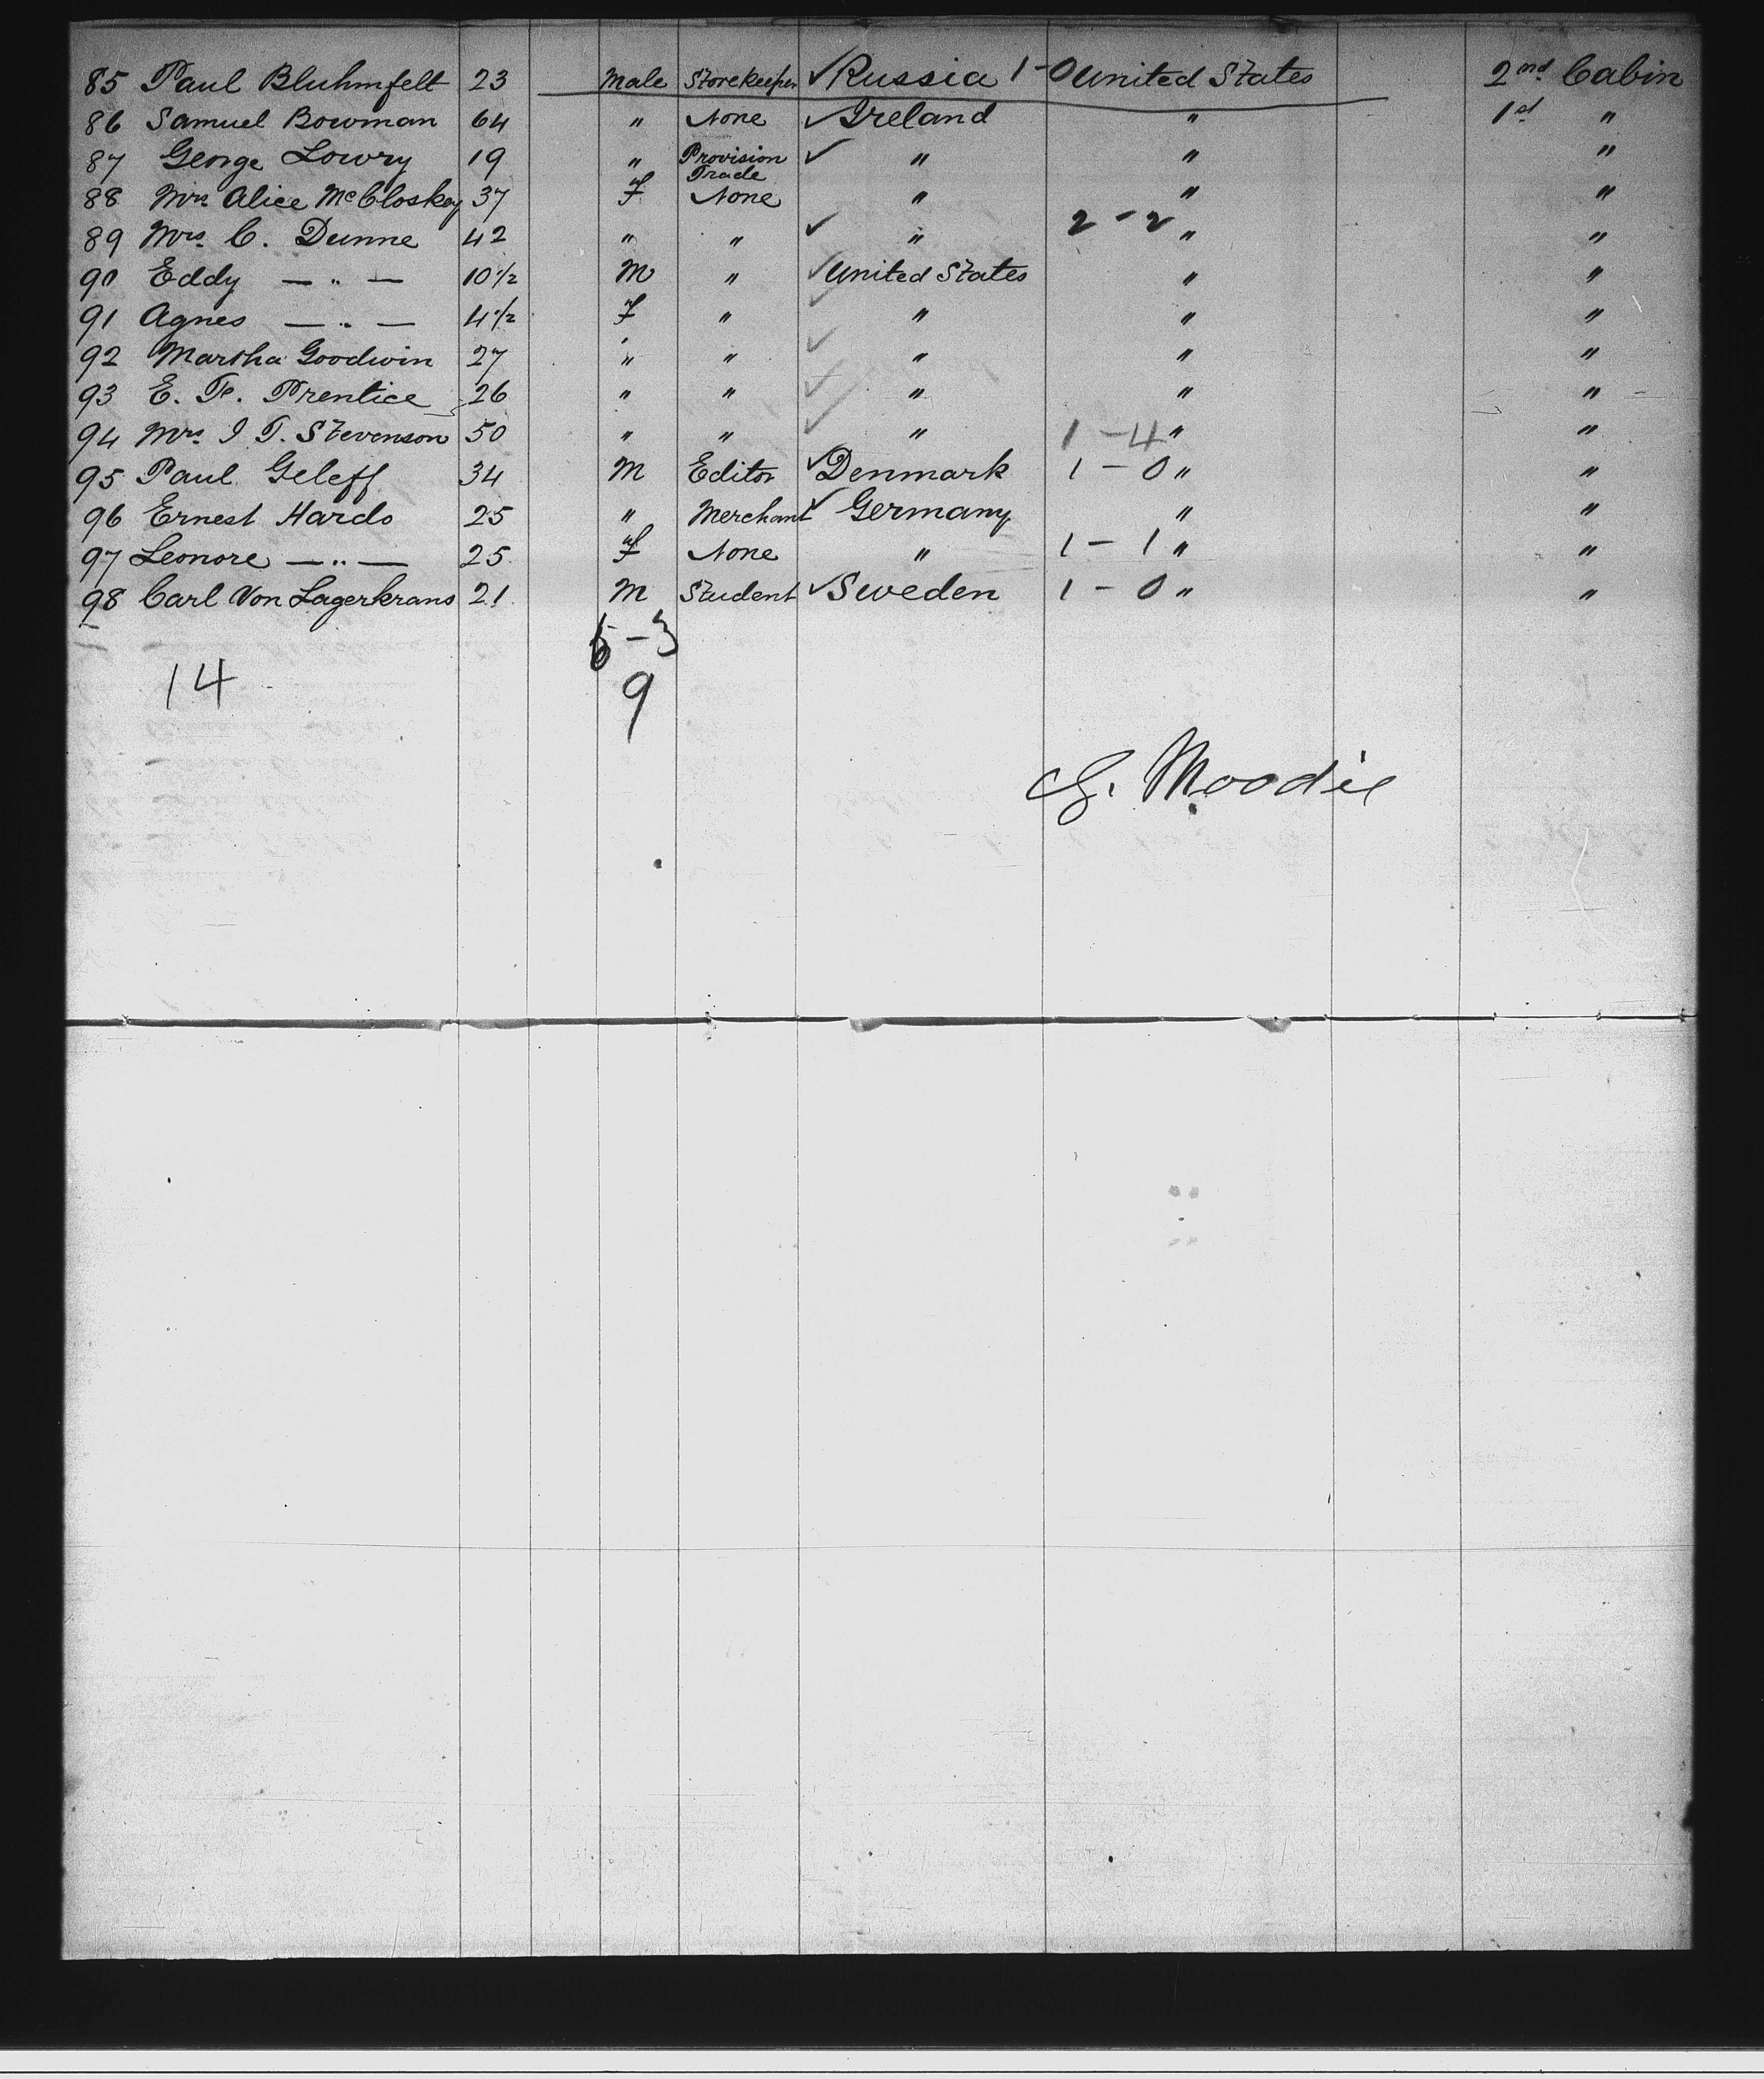 85 Paul Bluhmfelt 23 Male Storekeeper ✓ Russia 1-0 United States 2nd Cabin
86 Samuel Bowman 64 " None ✓ Ireland " 1st "
87 George Lowry 19 " Provision Trade ✓ " " "
88 Mrs Alice McCloskey 37 F None " " "
89 Mrs C. Dunne 42 " " ✓ " 2-2 " "
90 Eddy — " — 10 1/2 M " ✓ United States " "
91 Agnes — " — 4 1/2 F " ✓ " " "
92 Martha Goodwin 27 " " ✓ " " "
93 E. Prentice 26 " " ✓ " " "
94 Mrs I T. Stevenson 50 " " ✓ " 1-4 " "
95 Paul Geleff 34 M Editor ✓ Denmark 1-0 " "
96 Ernest Hardo 25 " Merchant ✓ Germany " "
97 Leonore — " — 25 F None " 1-1 " "
98 Carl Von Lagerkrans 21 M Student ✓ Sweden 1-0 " "
6-3
14 9
Moodie